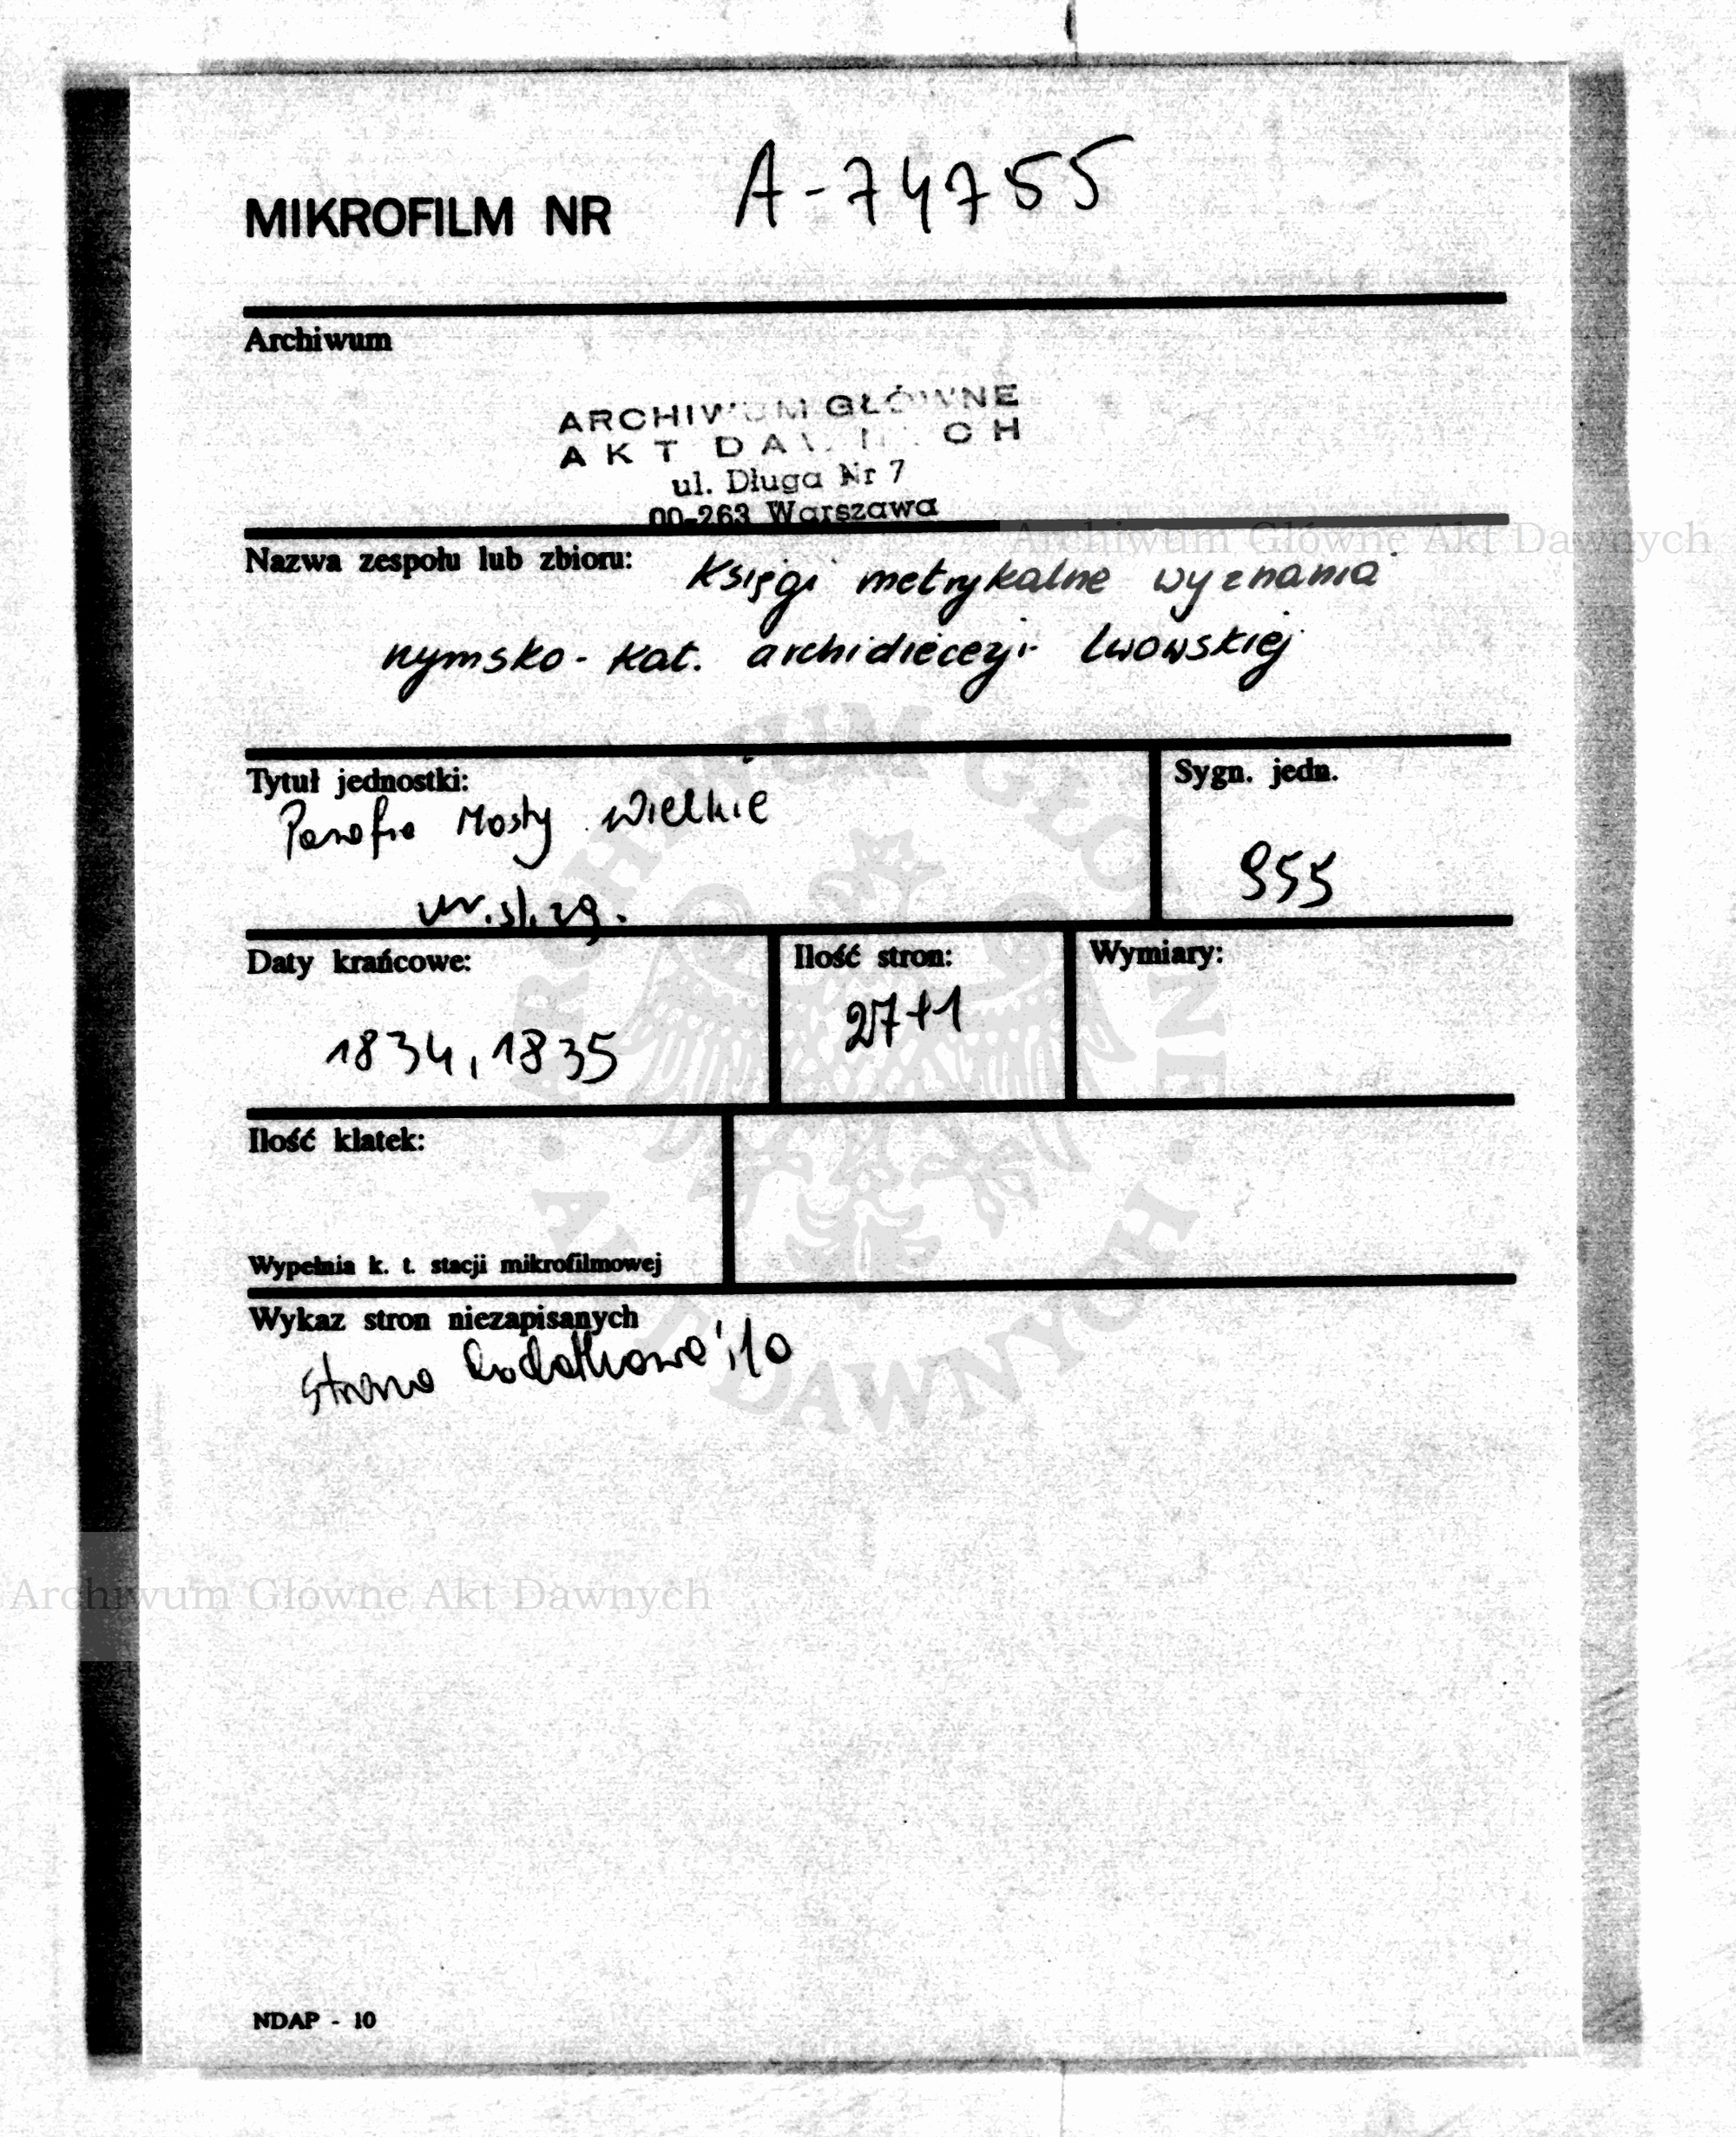 MIKROFILM NR A-74755
Archiwum
ARCHIWUM GŁÓWNE
AKT DAWNYCH
ul. Długa Nr 7
00-263 Warszawa
Archiwum Główne Akt Dawnych
Nazwa zespołu lub zbioru: Księgi metrykalne wyznania
rzymsko-kat. archidiecezji Lwowskiej
Tytuł jednostki:
Parafia Mosty Wielkie
ur. śl. zg.
Sygn. jedn.
955
Daty krańcowe:
1834, 1835
Ilość stron:
27+1
Wymiary:
Ilość klatek:
Wypełnia k. t. stacji mikrofilmowej
Wykaz stron niezapisanych
strona dodatkowa
Archiwum Główne Akt Dawnych
ARCHIWUM GŁÓWNE · AKT DAWNYCH ·
NDAP - 10